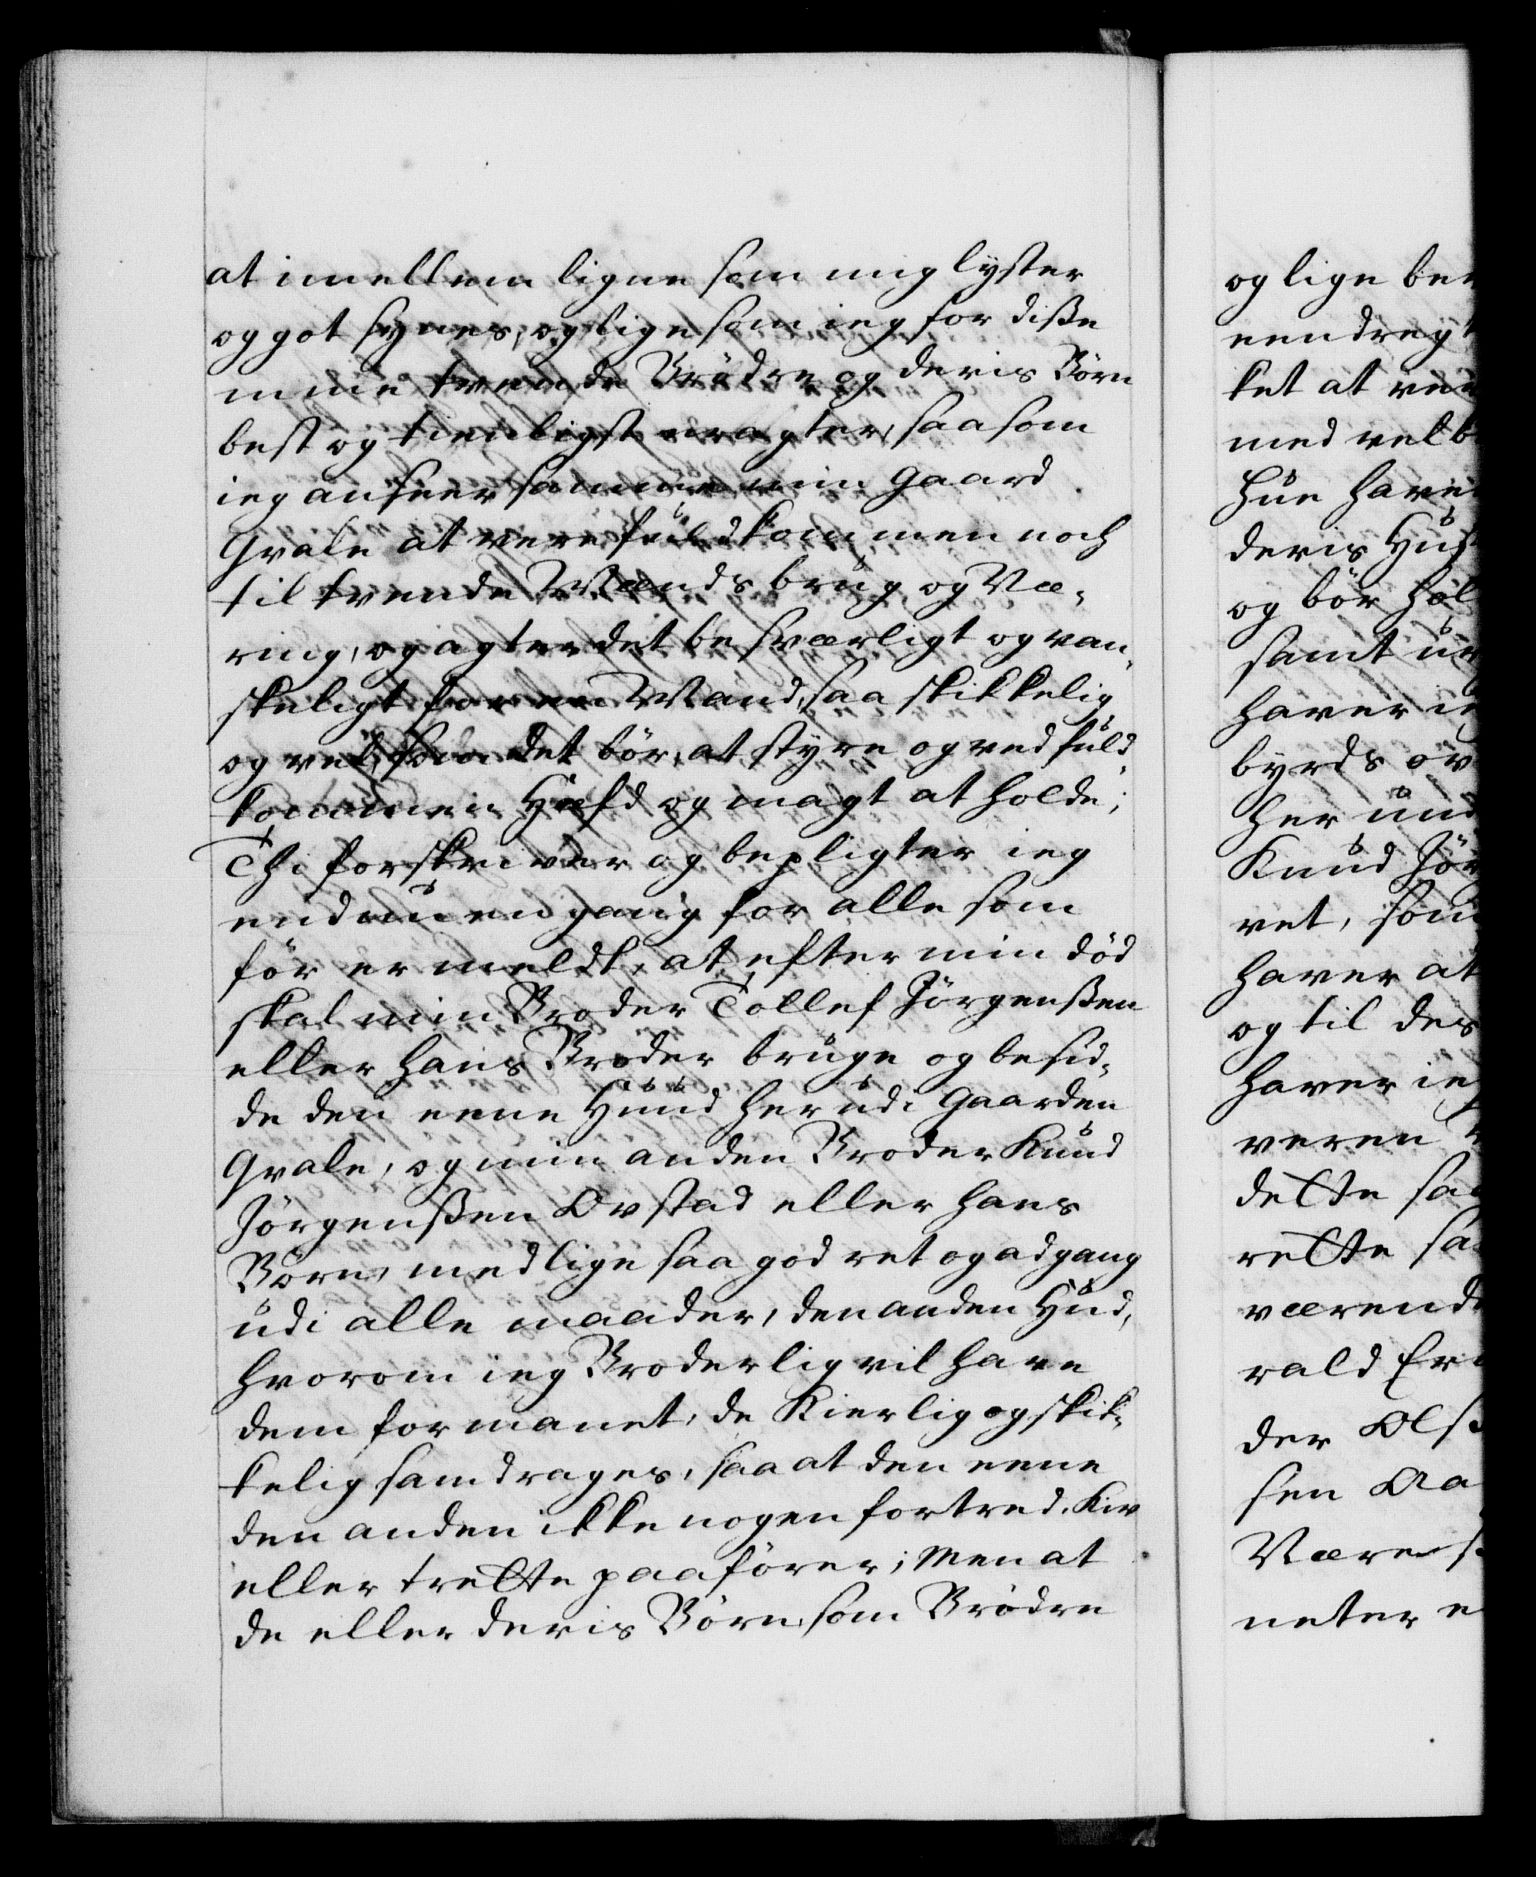 at imellem ligne som mig lyster
og got synes, og lige som ieg for diße
mine tvende Brödre og deris Börn
best og tienligst eragter, saa som
ieg anseer samme min Gaard
Qvale at vere fuldkommen noch
til tvende Mænds brug og Næ-
ring, og agter det besværligt og van-
skeligt for een Mand, saa skikkelig
og vel, som det bör, at styre og ved fuld-
kommen Hæfd og magt at holde;
Thi forskriver og bepligter ieg
endnu en gang for alle som
för er meldt, at efter min död
skal min Broder Tollef Jörgenßen
eller hans Broder bruge og besid-
de den eene Hund her udi Gaarden
Qvale, og min anden Broder Knud
Jörgenßen Ovstad eller hans
Börn, med lige saa god ret og adgang
udi alle maader, den anden Hud,
hvorom ieg Broderlig vil have
dem formanet, de Kierlig og skik-
kelig samdrages, saa at den eene
den anden ikke nogen fortred, Kiv
eller trette paaförer; Men at
de eller deris Börn, som Brödre
og lige
eendreg
ket at
med velb
hun
deris
og bör
samt
haver
byrds
her
Knud Jör
ret, som
haver at
og til des
haver ie
veren
dette saa
rette
værende
rald
der
sen
Være
neter